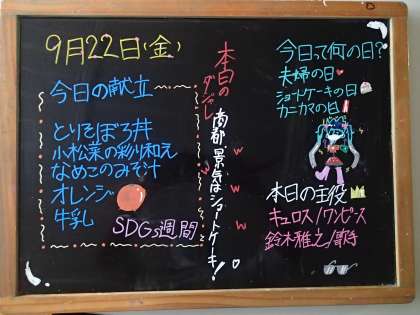 9月22日(金)
今日の献立
とりそぼろ丼
小松菜の彩り和え
なめこのみそ汁
オレンジ
牛乳
SDGs週間
本日の
ダジャレ
首都、景気はショートケーキ!
w
w
w
今日って何の日?
夫婦の日
ショートケーキの日
カニカマの日
本日の主役
キュロス/ワンピース
鈴木雅之/歌手